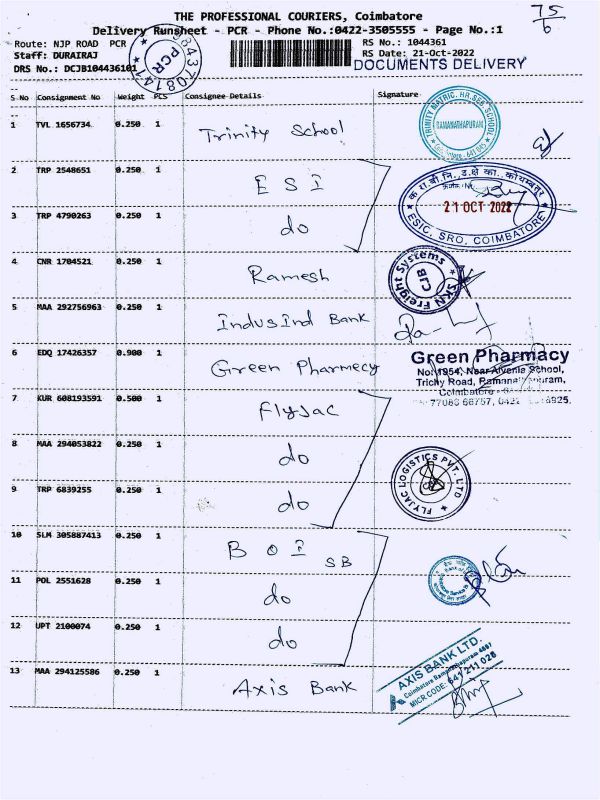 THE PROFESSIONAL COURIERS, Coimbatore
75/6
Delivery Runsheet - PCR - Phone No.:0422-3505555 - Page No.:1
Route: NJP ROAD PCR
RS No.: 1044361
Staff: DURAIRAJ
RS Date: 21-Oct-2022
DRS No.: DCJB104436101
DOCUMENTS DELIVERY
9843708141
PCR
S No Consignment No Weight PCS Consignee Details Signature
1 TVL 1656734 0.250 1 Trinity School
TRINITY MATRIC. HR. SEC. SCHOOL
RAMANATHAPURAM
2 TRP 2548651 0.250 1 ESI
21 OCT 2022
ESIC, SRO, COIMBATORE
3 TRP 4790263 0.250 1 do
4 CNR 1704521 0.250 1 Ramesh
SKN Freight Systems
CJB
5 MAA 292756963 0.250 1 IndusInd Bank
6 EDQ 17426357 0.900 1 Green Pharmecy
Green Pharmacy
No: 1954, Near Alvernia School,
Trichy Road, Ramanathapuram,
Coimbatore
7 KUR 608193591 0.500 1 FlyJac
8 MAA 294053822 0.250 1 do
FLYJAC LOGISTICS PVT. LTD
9 TRP 6839255 0.250 1 do
10 SLM 305887413 0.250 1 BOI SB
11 POL 2551628 0.250 1 do
12 UPT 2100074 0.250 1 do
13 MAA 294125586 0.250 1 Axis Bank
AXIS BANK LTD.
Coimbatore Ramanathapuram
MICR CODE: 641 211 028